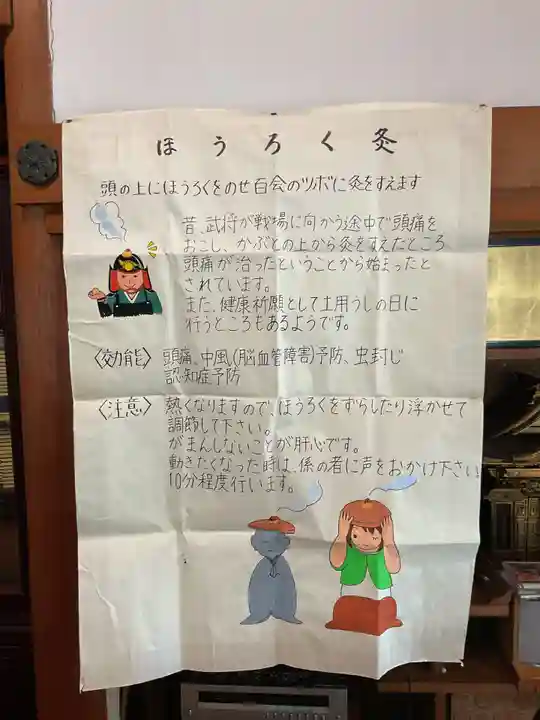 ほうろく灸
頭の上にほうろくをのせ百会のツボに灸をすえます
昔、武将が戦場に向かう途中で頭痛を
おこし、かぶとの上から灸をすえたところ
頭痛が治ったということから始まったと
されています。
また、健康祈願として土用うしの日に
行うところもあるようです。
〈効能〉 頭痛、中風、(脳血管障害)予防、虫封じ
認知症予防
〈注意〉 熱くなりますので、ほうろくをずらしたり浮かせて
調節して下さい。
がまんしないことが肝心です。
動きたくなった時は、係の者に声をおかけ下さい。
10分程度行います。